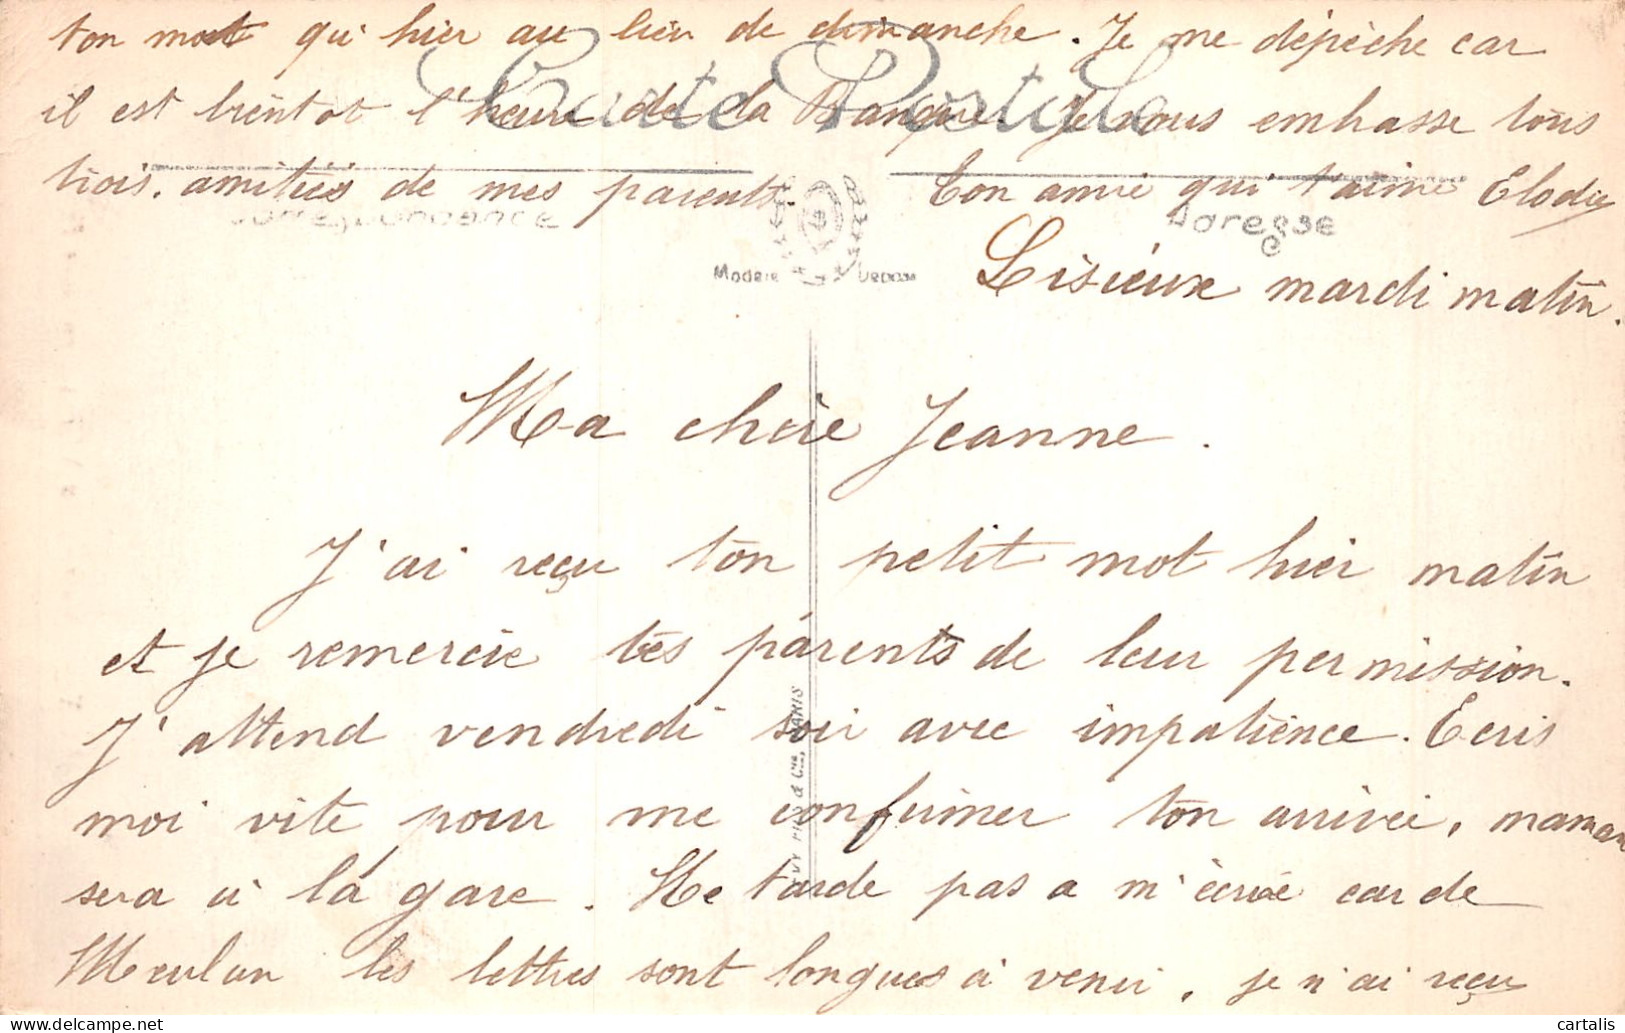 ton mot qu'hier au lieu de dimanche. Je me dépèche car
il est bientot l'heure de la Banque. Je vous embrasse tous
trois. amitiés de mes parents. Ton amie qui t'aime Elodie
Carte Postale
Correspondance
Adresse
Lisieux mardi matin.
Ma chère Jeanne.
J'ai reçu ton petit mot hier matin
et je remercie tes parents de leur permission.
J'attend vendredi soir avec impatience. Ecris
moi vite pour me confirmer ton arrivée, maman
sera à la gare. Ne tarde pas a m'écrire car de
Meulan les lettres sont longues à venir, je n'ai reçu
& Cie, PARIS
cartalis
delcampe.net